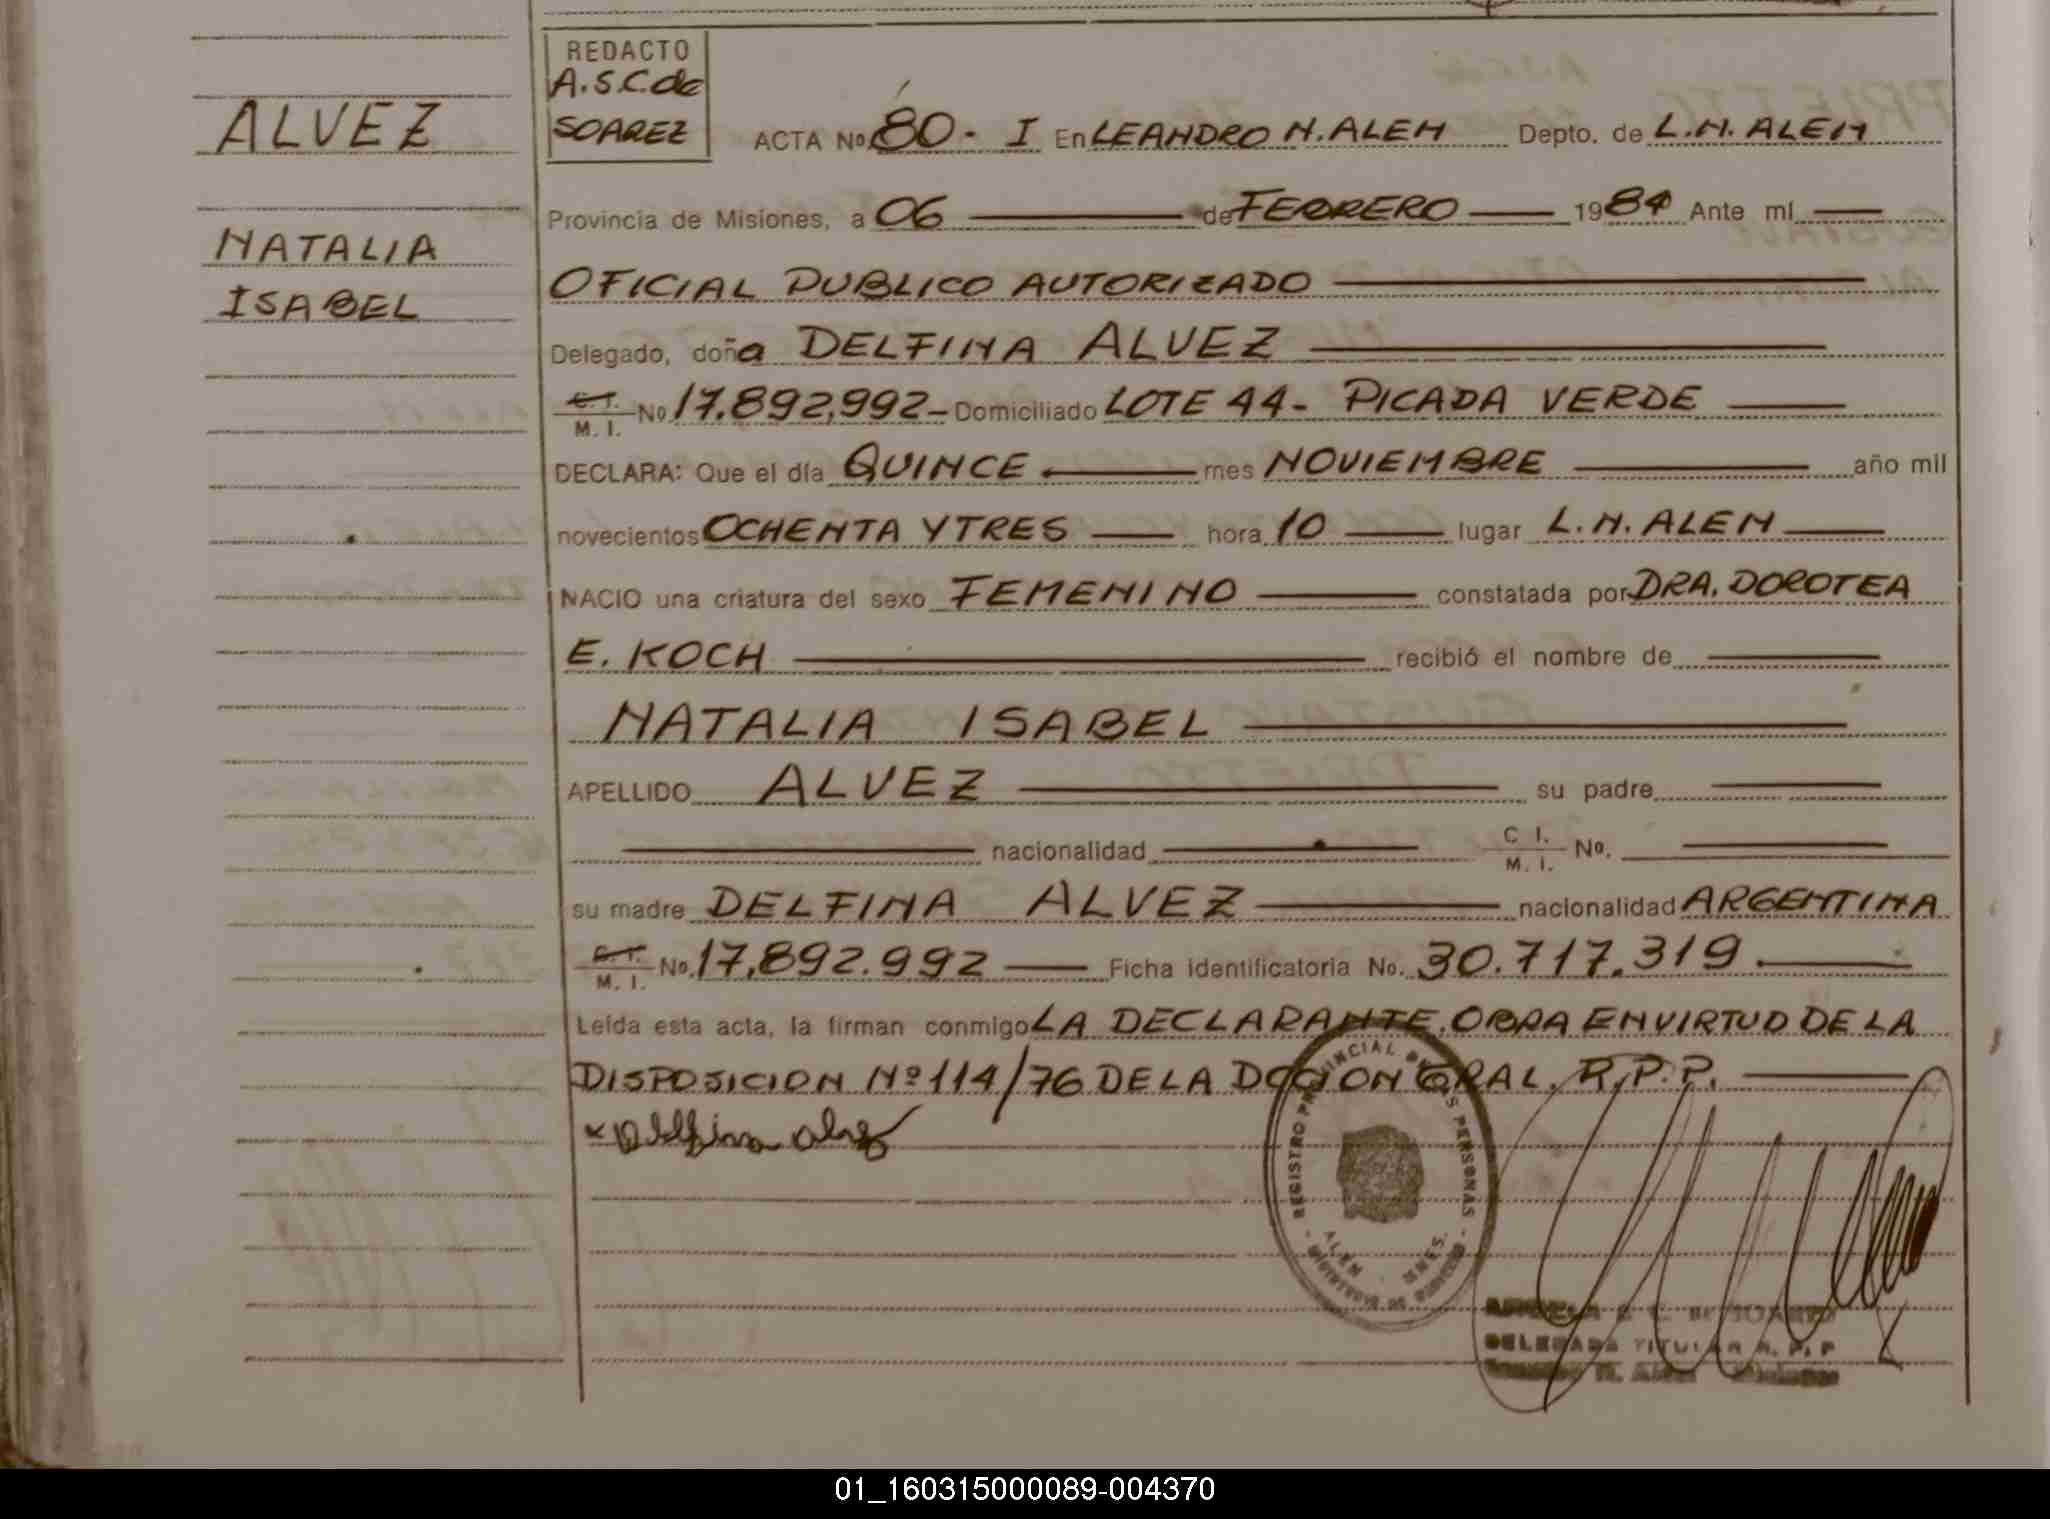 REDACTO
A.S.C. de
SOAREZ
ALVEZ
NATALIA
ISABEL
ACTA No 80 - I En LEANDRO N. ALEM Depto. de L.N. ALEM
Provincia de Misiones, a 06 de FEBRERO 1984 Ante mí
OFICIAL PUBLICO AUTORIZADO
Delegado, doña DELFINA ALVEZ
C. I. M. I. No 17.892.992- Domiciliado LOTE 44 - PICADA VERDE
DECLARA: Que el día QUINCE mes NOVIEMBRE año mil
novecientos OCHENTA Y TRES hora 10 lugar L.N. ALEM
NACIO una criatura del sexo FEMENINO constatada por DRA. DOROTEA
E. KOCH recibió el nombre de
NATALIA ISABEL
APELLIDO ALVEZ su padre
nacionalidad C I. M. I. No.
su madre DELFINA ALVEZ nacionalidad ARGENTINA
C. I. M. I. No. 17.892.992 Ficha identificatoria No. 30.717.319.
Leída esta acta, la firman conmigo LA DECLARANTE. OBRA EN VIRTUD DE LA
DISPOSICION Nº 114/76 DE LA DCCION GRAL. R.P.P.
x Delfina Alvez
REGISTRO PROVINCIAL DE LAS PERSONAS
ALEM MNES.
MINISTERIO DE GOBIERNO
DELEGADA TITULAR R. P. P
01_160315000089-004370